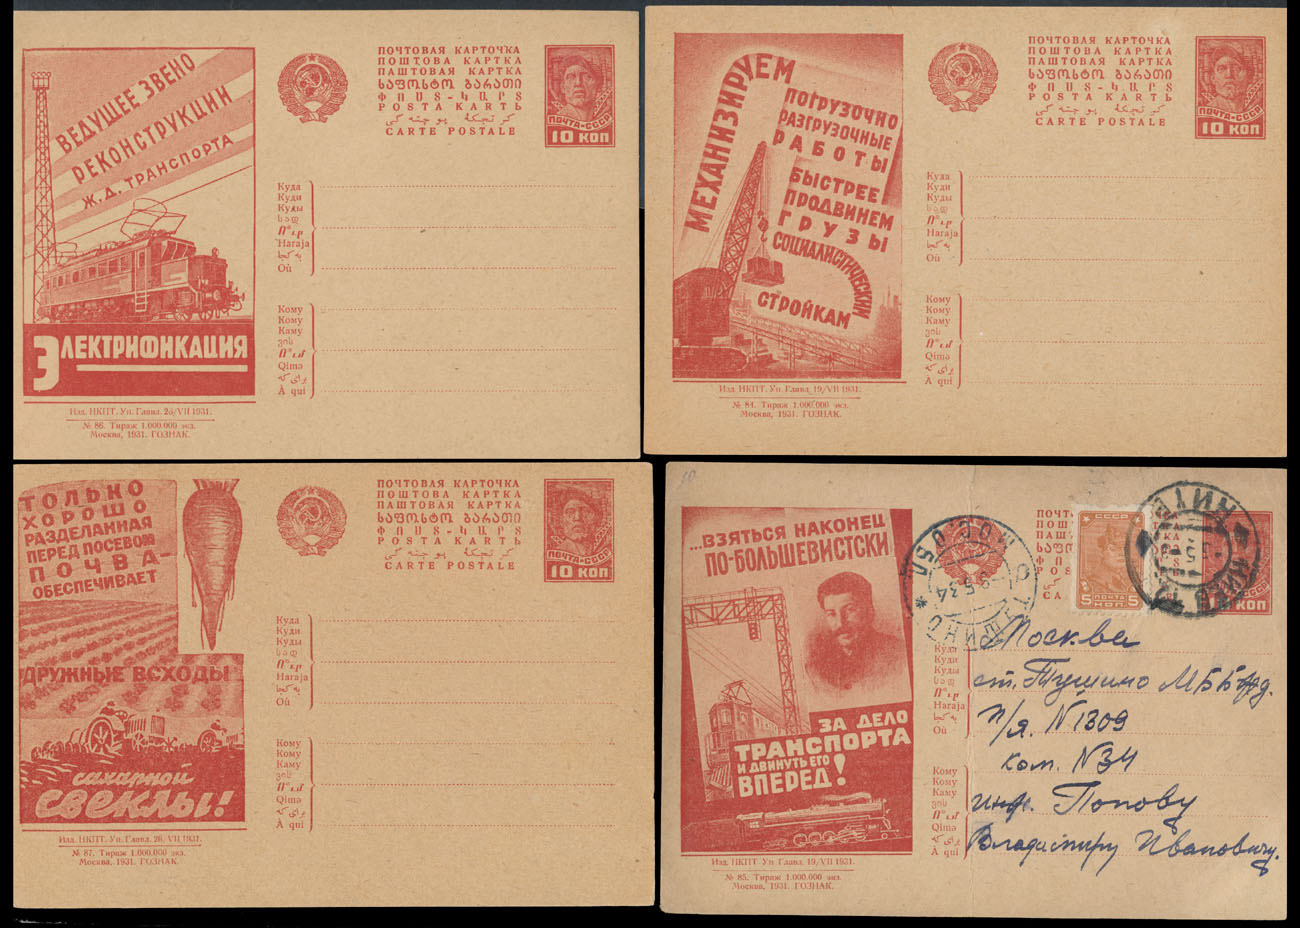 ВЕДУЩЕЕ ЗВЕНО
РЕКОНСТРУКЦИИ
Ж. Д. ТРАНСПОРТА
ЭЛЕКТРИФИКАЦИЯ
Изд. НКПТ. Уп. Главл. 26/VII 1931.
№ 86. Тираж 1.000.000 экз.
Москва, 1931. ГОЗНАК.
ПОЧТОВАЯ КАРТОЧКА
ПОШТОВА КАРТКА
ПАШТОВАЯ КАРТКА
ᲡᲐᲤᲝᲡᲢᲝ ᲑᲐᲠᲐᲗᲘ
ՓՈՍՏ-ՔԱՐՏ
POSTA KARTЬ
CARTE POSTALE
ПОЧТА-СССР
10 КОП
Куда
Куди
Куды
სად
Haraja
Où
Кому
Кому
Каму
ვის
Qimə
À qui
МЕХАНИЗИРУЕМ
ПОГРУЗОЧНО
РАЗГРУЗОЧНЫЕ
РАБОТЫ
БЫСТРЕЕ
ПРОДВИНЕМ
ГРУЗЫ
СОЦИАЛИСТИЧЕСКИМ
СТРОЙКАМ
Изд. НКПТ. Уп. Главл. 19/VII 1931.
№ 84. Тираж 1.000.000 экз.
Москва, 1931. ГОЗНАК.
ПОЧТОВАЯ КАРТОЧКА
ПОШТОВА КАРТКА
ПАШТОВАЯ КАРТКА
ᲡᲐᲤᲝᲡᲢᲝ ᲑᲐᲠᲐᲗᲘ
POSTA KARTЬ
CARTE POSTALE
ПОЧТА-СССР
10 КОП
Куда
Куди
Куды
Haraja
Où
Кому
Кому
Каму
ვის
Qimə
À qui
ТОЛЬКО
ХОРОШО
РАЗДЕЛАННАЯ
ПЕРЕД ПОСЕВОМ
ПОЧВА-
ОБЕСПЕЧИВАЕТ
ДРУЖНЫЕ ВСХОДЫ
сахарной
СВЕКЛЫ!
Изд. НКПТ. Уп. Главл. 26. VII 1931.
№ 87. Тираж 1.000.000 экз.
Москва, 1931. ГОЗНАК.
ПОЧТОВАЯ КАРТОЧКА
ПОШТОВА КАРТКА
ПАШТОВАЯ КАРТКА
ᲡᲐᲤᲝᲡᲢᲝ ᲑᲐᲠᲐᲗᲘ
POSTA KARTЬ
CARTE POSTALE
ПОЧТА-СССР
10 КОП
Куда
Куди
Куды
Haraja
Où
Кому
Кому
Каму
ვის
Qimə
À qui
...ВЗЯТЬСЯ НАКОНЕЦ
ПО-БОЛЬШЕВИСТСКИ
ЗА ДЕЛО
ТРАНСПОРТА
И ДВИНУТЬ ЕГО
ВПЕРЕД!
Изд. НКПТ Уп. Главл. 19/VII 1931.
№ 85. Тираж 1.000.000 экз.
Москва, 1931. ГОЗНАК.
СССР
ПОЧТА
5 КОП. 5
КОП
Куда
Куди
Куды
Haraja
Où
Кому
Кому
Каму
Qimə
À qui
Москва
ст. Тушино
п/я. N 1309
ком. N 34
инж. Попову
Владимиру Ивановичу.